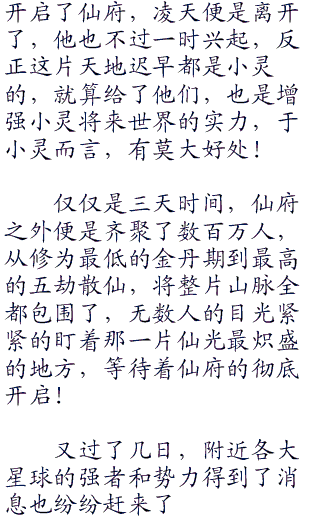 开启了仙府，凌天便是离开
了，他也不过一时兴起，反
正这片天地迟早都是小灵
的，就算给了他们，也是增
强小灵将来世界的实力，于
小灵而言，有莫大好处！
仅仅是三天时间，仙府
之外便是齐聚了数百万人，
从修为最低的金丹期到最高
的五劫散仙，将整片山脉全
都包围了，无数人的目光紧
紧的盯着那一片仙光最炽盛
的地方，等待着仙府的彻底
开启！
又过了几日，附近各大
星球的强者和势力得到了消
息也纷纷赶来了